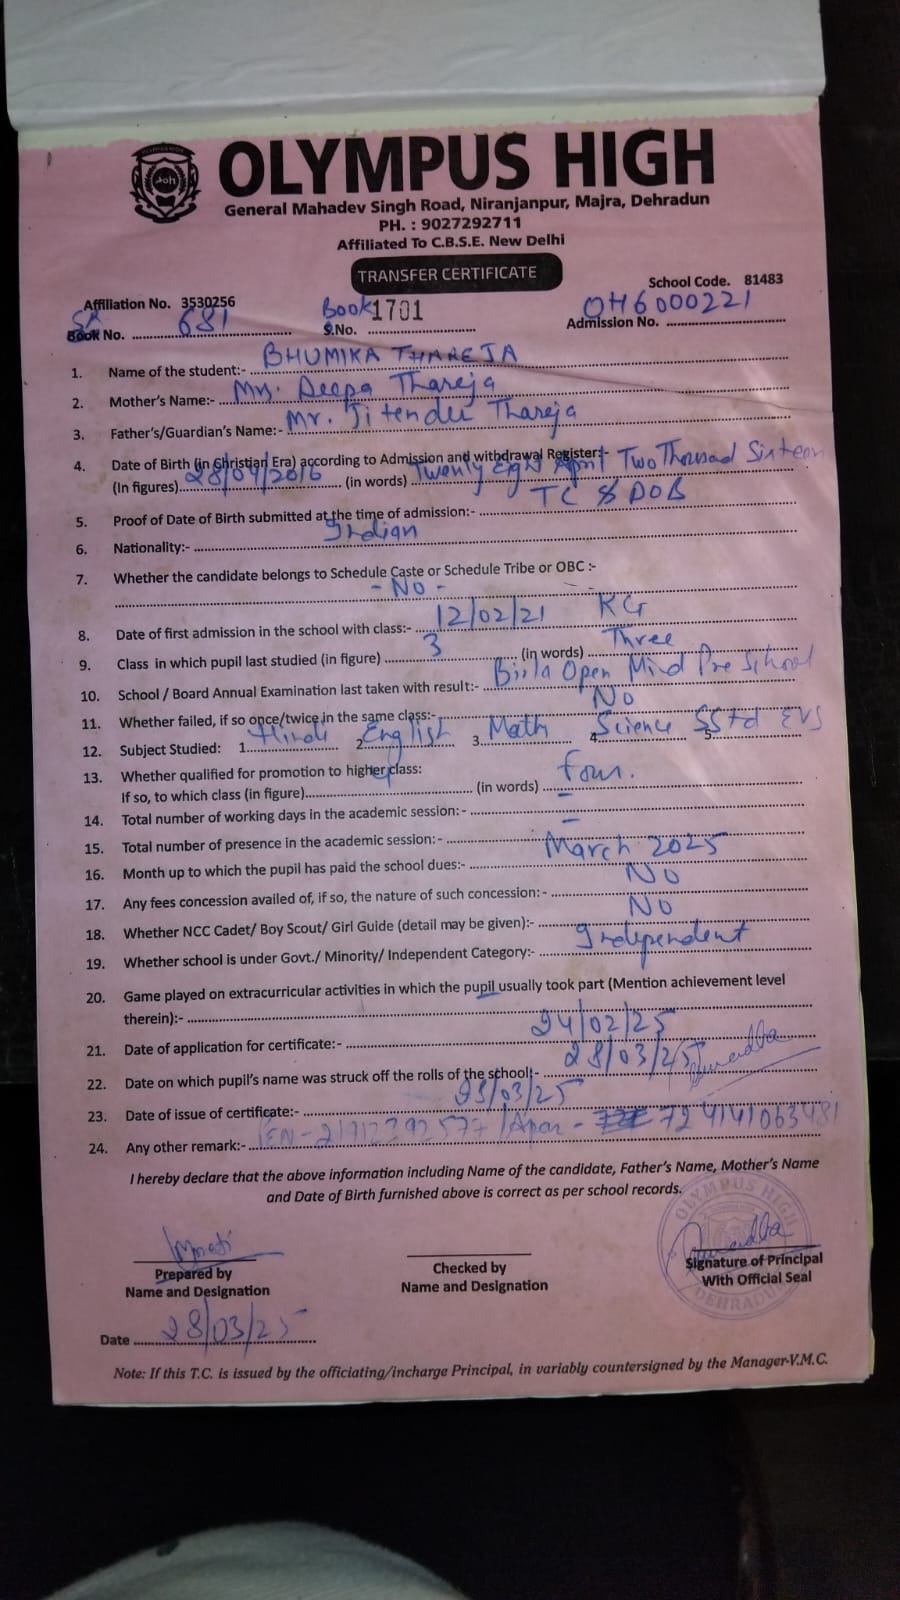 OLYMPUS HIGH
General Mahadev Singh Road, Niranjanpur, Majra, Dehradun
PH. : 9027292711
Affiliated To C.B.S.E. New Delhi
TRANSFER CERTIFICATE
School Code. 81483
Affiliation No. 3530256
Sr Book No. 681 Book S.No. 1701 Admission No. OH6000221
1. Name of the student:- BHUMIKA THAREJA
2. Mother's Name:- Mrs. Deepa Thareja
3. Father's/Guardian's Name:- Mr. Jitender Thareja
4. Date of Birth (in Christian Era) according to Admission and withdrawal Register:-
(In figures) 28/04/2016 (in words) Twenty Eight April Two Thousand Sixteen
5. Proof of Date of Birth submitted at the time of admission:- TC & DOB
6. Nationality:- Indian
7. Whether the candidate belongs to Schedule Caste or Schedule Tribe or OBC :-
- No -
8. Date of first admission in the school with class:- 12/02/21 KG
9. Class in which pupil last studied (in figure) 3 (in words) Three
10. School / Board Annual Examination last taken with result:- Birla Open Mind Pre School
11. Whether failed, if so once/twice in the same class:- No
12. Subject Studied: 1. Hindi 2. English 3. Math 4. Science 5. SStd EVS
13. Whether qualified for promotion to higher class:
If so, to which class (in figure) (in words) four.
14. Total number of working days in the academic session:- –
15. Total number of presence in the academic session:- –
16. Month up to which the pupil has paid the school dues:- March 2025
17. Any fees concession availed of, if so, the nature of such concession:- No
18. Whether NCC Cadet/ Boy Scout/ Girl Guide (detail may be given):- No
19. Whether school is under Govt./ Minority/ Independent Category:- Independent
20. Game played on extracurricular activities in which the pupil usually took part (Mention achievement level
therein):-
21. Date of application for certificate:- 24/02/25
22. Date on which pupil's name was struck off the rolls of the school:- 28/03/25
23. Date of issue of certificate:- 28/03/25
24. Any other remark:- PEN - /Apar - 724141063481
I hereby declare that the above information including Name of the candidate, Father's Name, Mother's Name
and Date of Birth furnished above is correct as per school records.
OLYMPUS HIGH
DEHRADUN
Prepared by
Name and Designation
Checked by
Name and Designation
Signature of Principal
With Official Seal
Date 28/03/25
Note: If this T.C. is issued by the officiating/incharge Principal, in variably countersigned by the Manager-V.M.C.